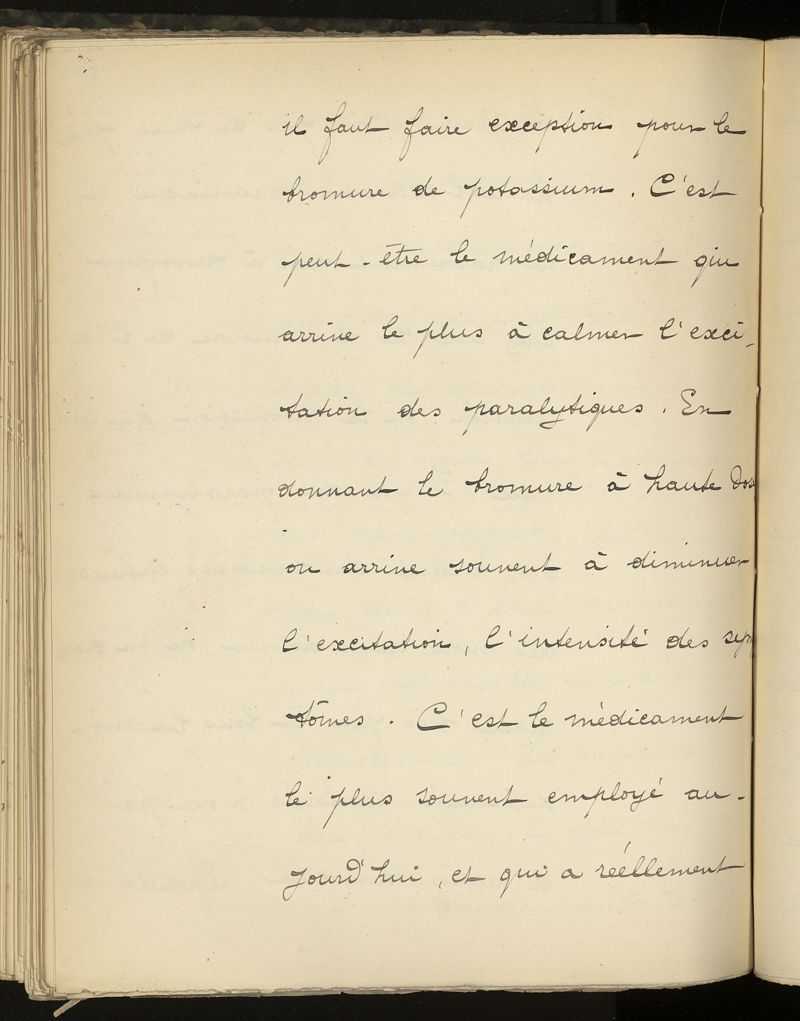 il faut faire exception pour le
bromure de potassium. C'est
peut-être le médicament qui
arrive le plus à calmer l'exci-
tation des paralytiques. En
donnant le bromure à haute dose
on arrive souvent à diminuer
l'excitation, l'intensité des symp
tômes. C'est le médicament
le plus souvent employé au-
jourd'hui, et qui a réellement